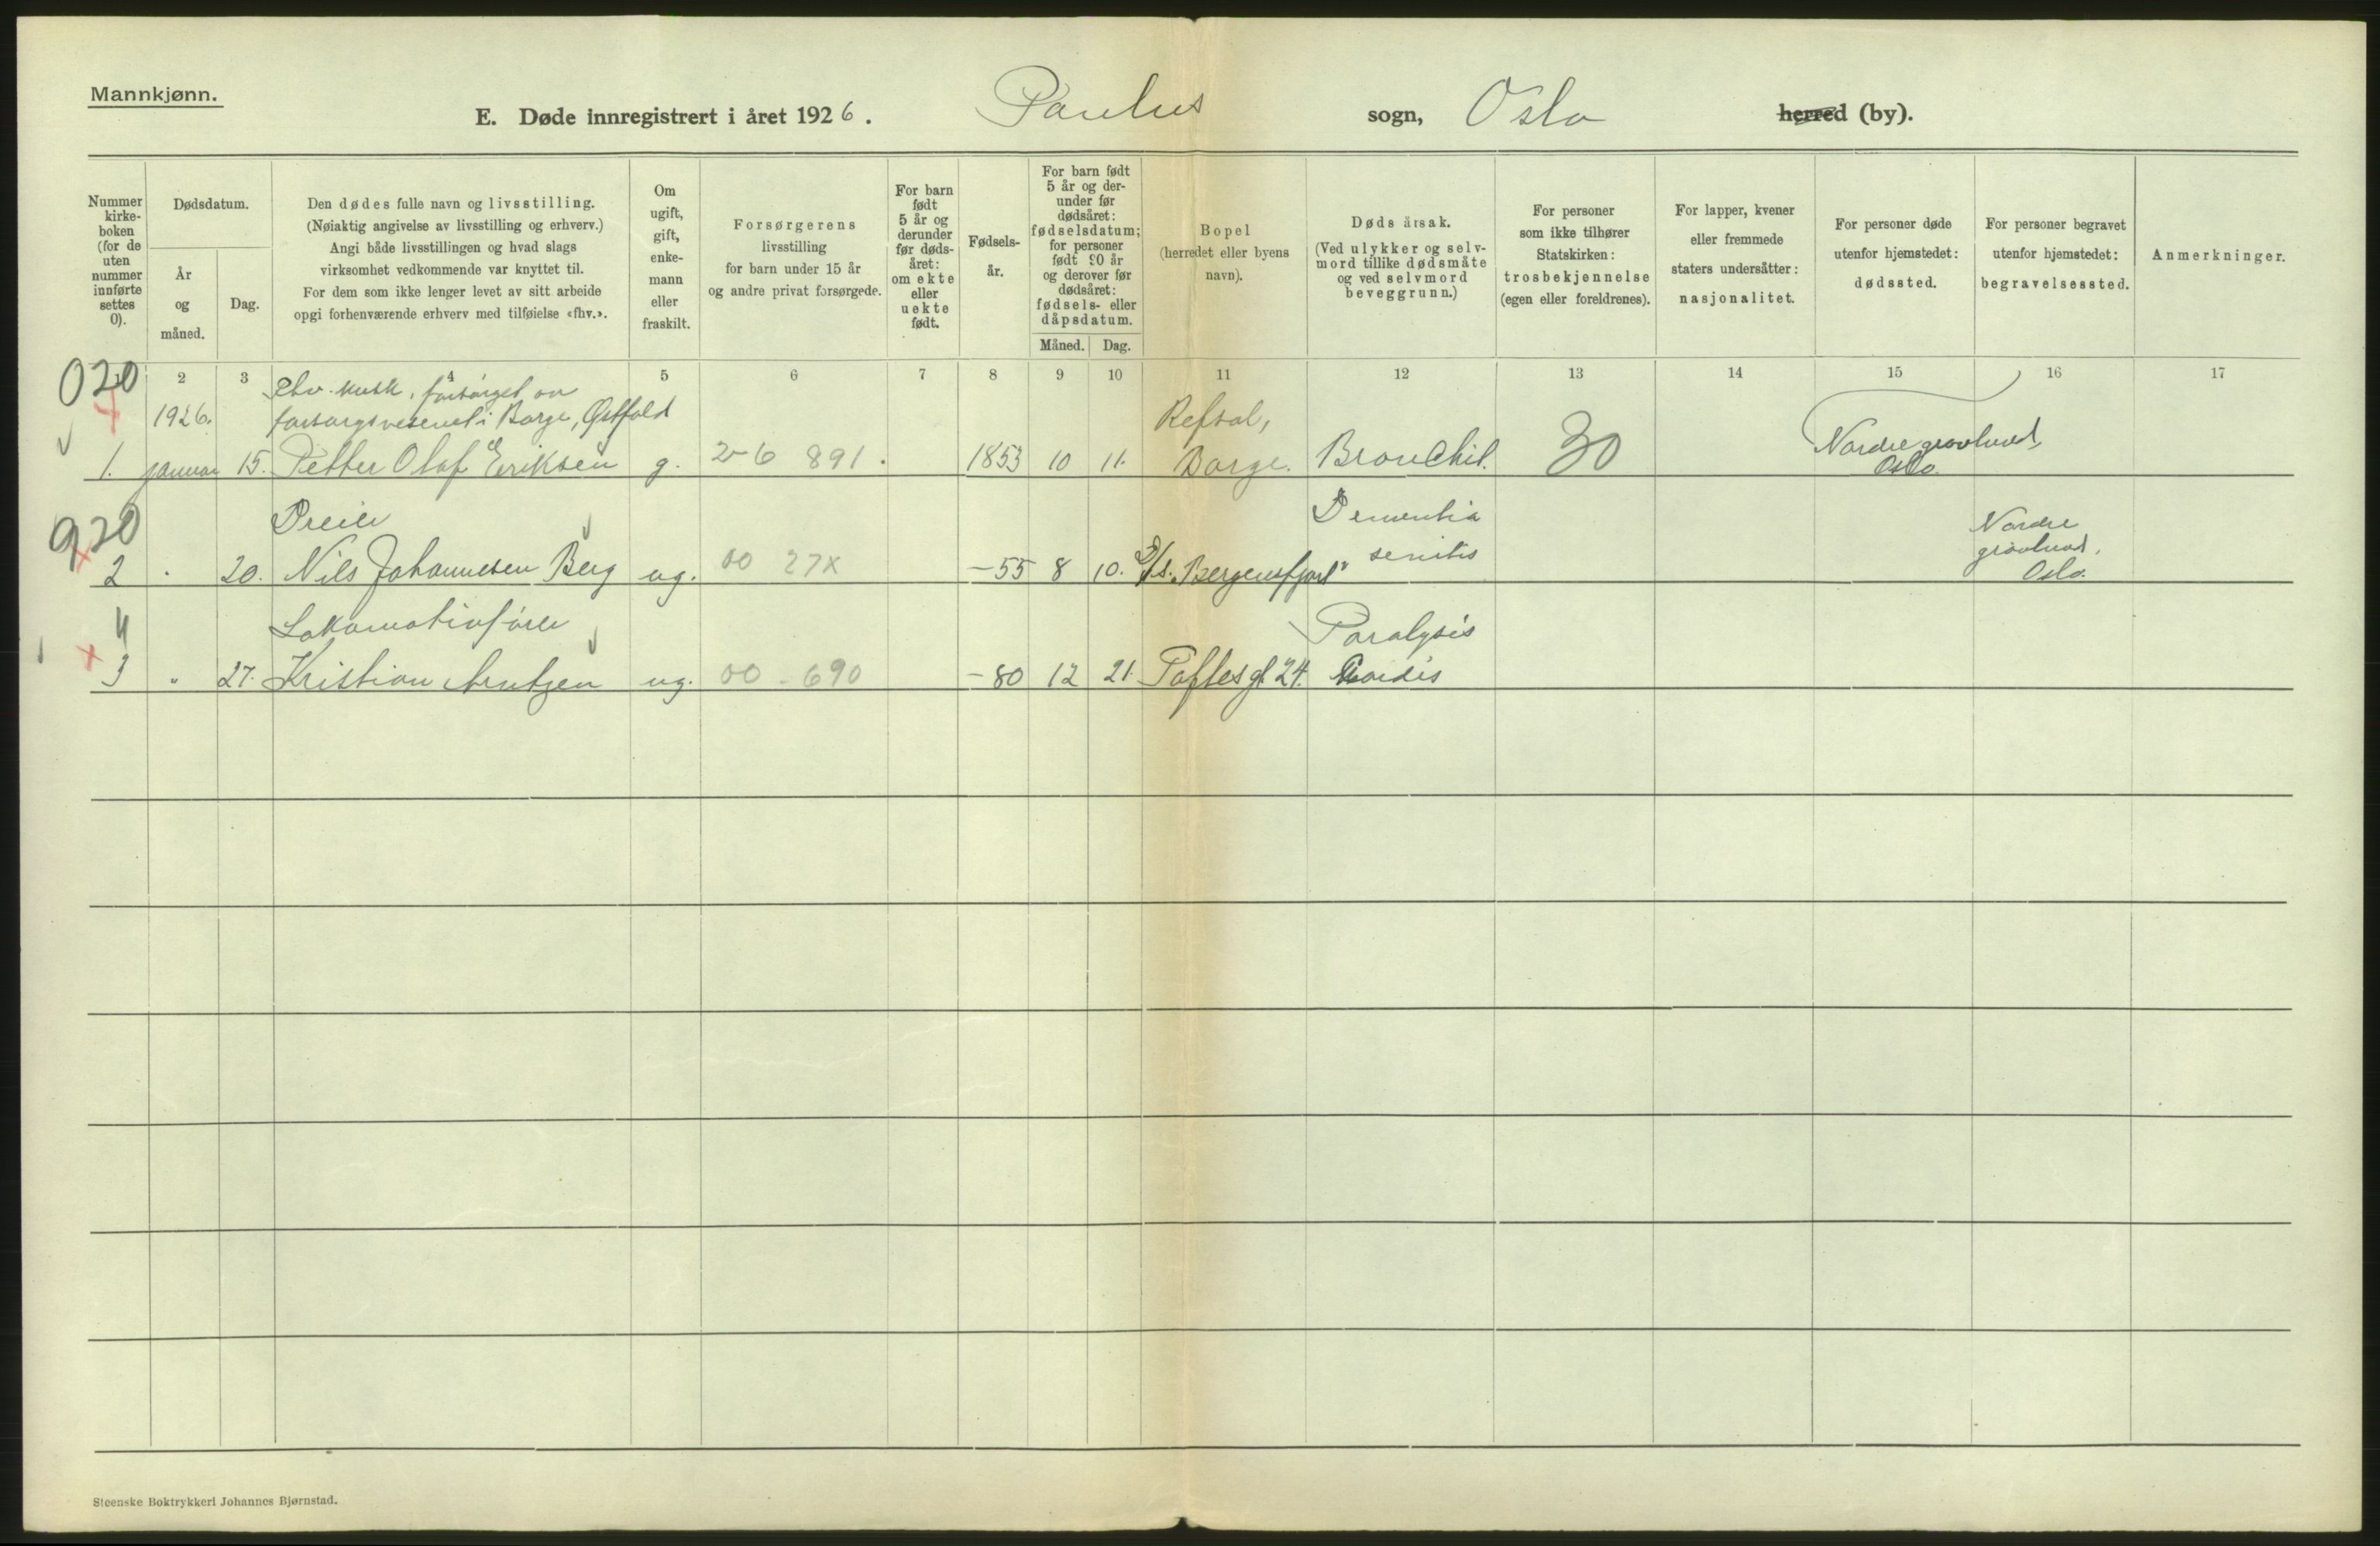 Mannkjønn.
E. Døde innregistrert i året 1926. Paulus sogn, Oslo herred (by).
Nummer kirke-boken (for de uten nummer innførte settes 0).
Dødsdatum.
År og måned.
Dag.
Den dødes fulle navn og livsstilling.
(Nøiaktig angivelse av livsstilling og erhverv.)
Angi både livsstillingen og hvad slags
virksomhet vedkommende var knyttet til.
For dem som ikke lenger levet av sitt arbeide
opgi forhenværende erhverv med tilføielse «fhv.».
Om ugift, gift, enke-mann eller fraskilt.
Forsørgerens
livsstilling
for barn under 15 år
og andre privat forsørgede.
For barn født 5 år og derunder før døds-året: om ekte eller uekte født.
Fødsels-år.
For barn født 5 år og der-under før dødsåret: fødselsdatum; for personer født 90 år og derover før dødsåret: fødsels- eller dåpsdatum.
Måned. Dag.
Bopel
(herredet eller byens
navn).
Dødsårsak.
(Ved ulykker og selv-
mord tillike dødsmåte
og ved selvmord
beveggrunn.)
For personer
som ikke tilhører
Statskirken:
trosbekjennelse
(egen eller foreldrenes).
For lapper, kvener
eller fremmede
staters undersåtter:
nasjonalitet.
For personer døde
utenfor hjemstedet:
dødssted.
For personer begravet
utenfor hjemstedet:
begravelsessted.
Anmerkninger.
2 3 4 5 6 7 8 9 10 11 12 13 14 15 16 17
020
1926.
Fhv. kusk, forsørget av
forsorgsvesenet i Borge, Østfold
Refsal,
1. januar 15. Petter Olaf Eriksen g. 2-6 891. 1853 10 11. Borge. Bronchit. 30 Nordre gravlund, Oslo.
920
Dreier
Dementia
Nordre
gravlund,
2 20. Nils Johannesen Berg ug. 00 27X -55 8 10. D/s. "Bergensfjord" senilis Oslo.
4
Lokomotivfører
Paralysis
3 " 27. Kristian Arntzen ug. 00-690 -80 12 21. Toftesgt. 24. Cordis
Steenske Boktrykkeri Johannes Bjørnstad.